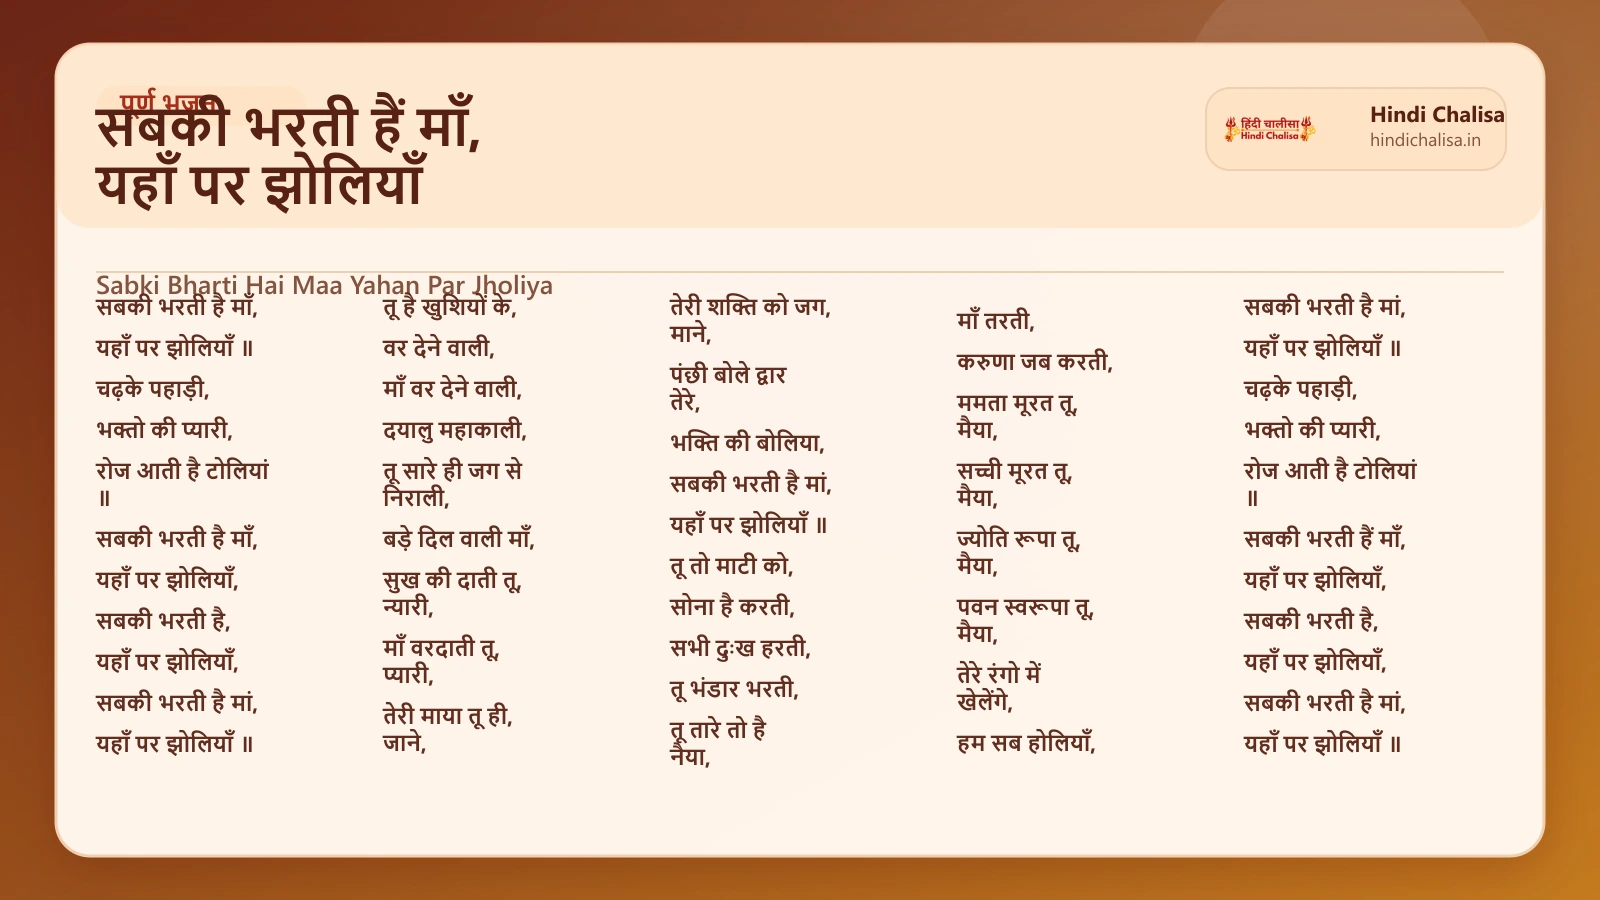 पूर्ण भजन
सबकी भरती हैं माँ,
यहाँ पर झोलियाँ
हिंदी चालीसा
Hindi Chalisa
Hindi Chalisa
hindichalisa.in
Sabki Bharti Hai Maa Yahan Par Jholiya
सबकी भरती है माँ,
यहाँ पर झोलियाँ ॥
चढ़के पहाड़ी,
भक्तो की प्यारी,
रोज आती है टोलियां
॥
सबकी भरती है माँ,
यहाँ पर झोलियाँ,
सबकी भरती है,
यहाँ पर झोलियाँ,
सबकी भरती है मां,
यहाँ पर झोलियाँ ॥
तू है खुशियों के,
वर देने वाली,
माँ वर देने वाली,
दयालु महाकाली,
तू सारे ही जग से
निराली,
बड़े दिल वाली माँ,
सुख की दाती तू,
न्यारी,
माँ वरदाती तू,
प्यारी,
तेरी माया तू ही,
जाने,
तेरी शक्ति को जग,
माने,
पंछी बोले द्वार
तेरे,
भक्ति की बोलिया,
सबकी भरती है मां,
यहाँ पर झोलियाँ ॥
तू तो माटी को,
सोना है करती,
सभी दुःख हरती,
तू भंडार भरती,
तू तारे तो है
नैया,
माँ तरती,
करुणा जब करती,
ममता मूरत तू,
मैया,
सच्ची मूरत तू,
मैया,
ज्योति रूपा तू,
मैया,
पवन स्वरूपा तू,
मैया,
तेरे रंगो में
खेलेंगे,
हम सब होलियाँ,
सबकी भरती है मां,
यहाँ पर झोलियाँ ॥
चढ़के पहाड़ी,
भक्तो की प्यारी,
रोज आती है टोलियां
॥
सबकी भरती हैं माँ,
यहाँ पर झोलियाँ,
सबकी भरती है,
यहाँ पर झोलियाँ,
सबकी भरती है मां,
यहाँ पर झोलियाँ ॥